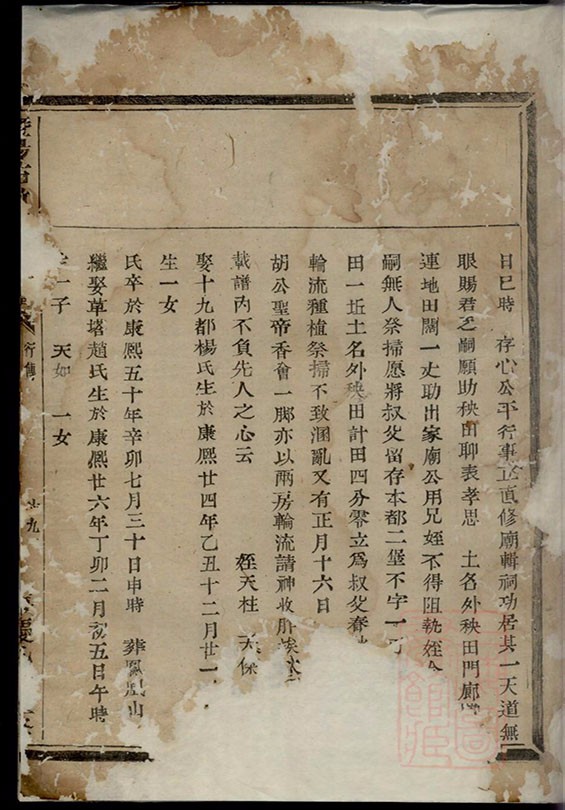 日巳時　存心公平行事正直修廟輯祠功居其一天道無
眼賜君乏嗣願助秧田聊表孝思　土名外秧田門廊
連地田闊一丈助出家廟公用兄姪不得阻執姪
嗣無人祭掃愿將叔父留存本都二堡不字一
田一坵土名外秧田計田四分零立爲叔父春
輪流種植祭掃不致溷亂又有正月十六日
胡公聖帝香會一脚亦以兩房輪流請神收胙
載譜內不負先人之心云　姪天柱　天保
娶十九都楊氏生於康熙廿四年乙丑十二月廿一
生一女
氏卒於康熙五十年辛卯七月三十日申時　葬鳳凰山
繼娶草塔趙氏生於康熙廿六年丁卯二月初五日午時
生一子　天如　一女
行傳
廿九